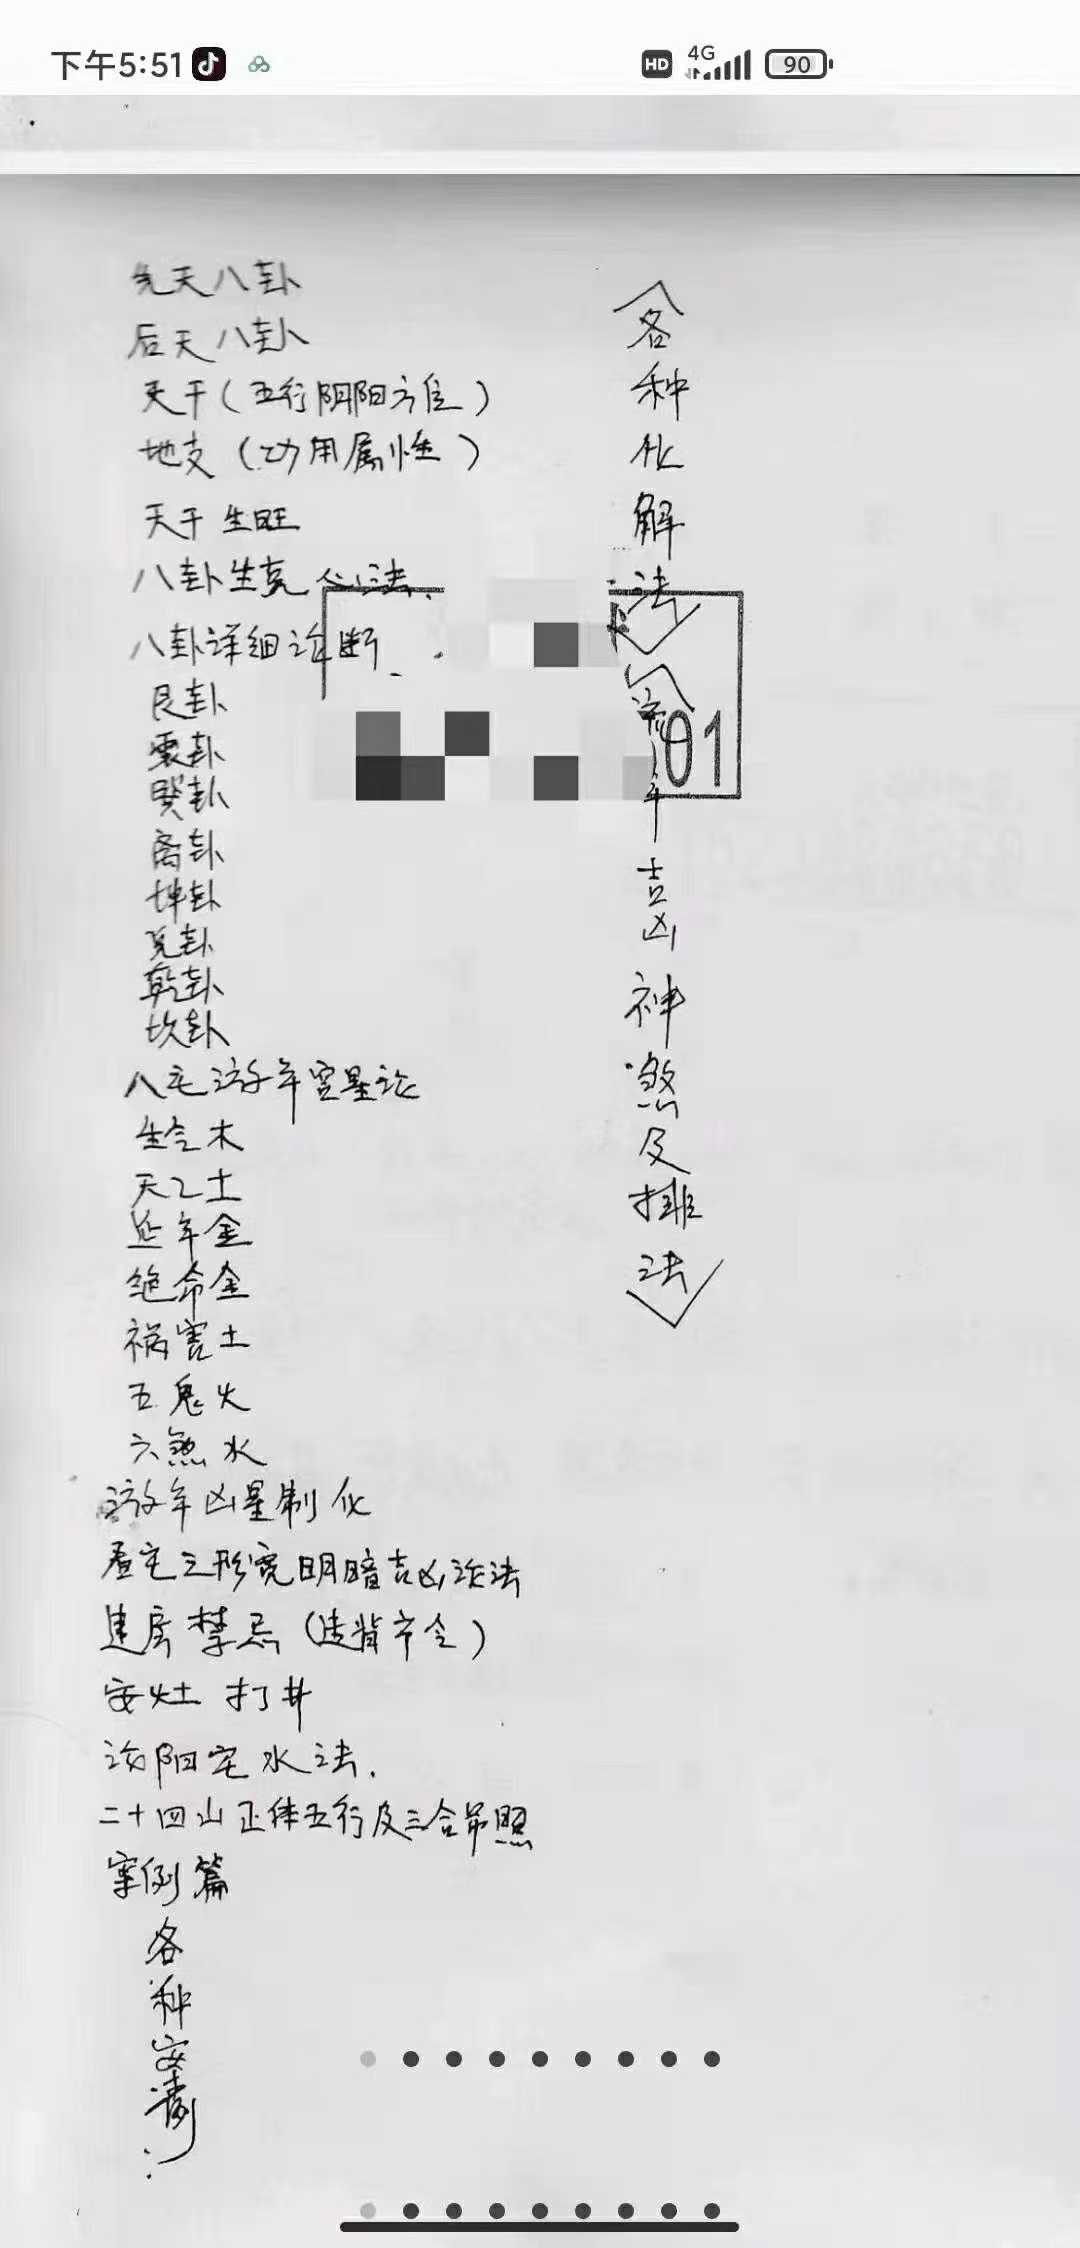 下午5:51
HD 4G 90
先天八卦
后天八卦
天干（五行阴阳方位）
地支（功用属性）
天干生旺
八卦生克心法
八卦详细诊断
艮卦
震卦
巽卦
离卦
坤卦
兑卦
乾卦
坎卦
八宅游年宫星论
生气木
天乙土
延年金
绝命金
祸害土
五鬼火
六煞水
游年凶星制化
看宅之形宽明暗吉凶论法
建房禁忌
安灶 打井
论阳宅水法.
二十四山正体五行及三合吊照
案例篇
各种
各种化解法
流年吉凶神煞及排法
01